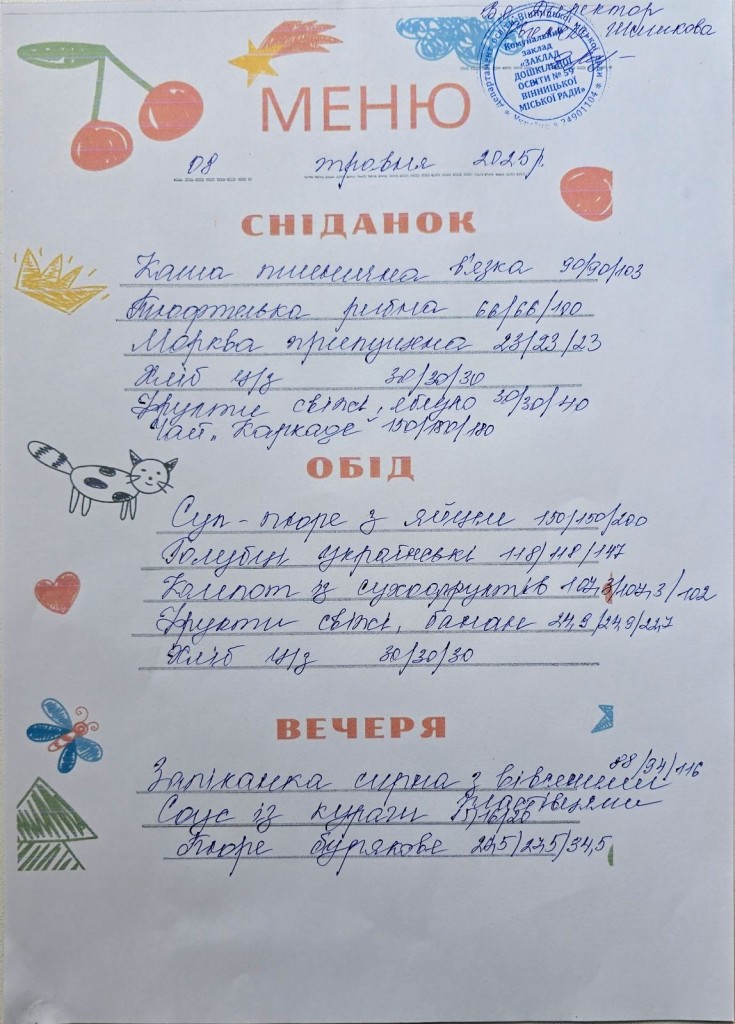 В.о. Директор
Шишкова
Департамент освіти Вінницької міської ради
Комунальний
заклад
«ЗАКЛАД
ДОШКІЛЬНОЇ
ОСВІТИ № 59
ВІННИЦЬКОЇ
МІСЬКОЇ РАДИ»
24901104
МЕНЮ
08 травня 2025р.
СНІДАНОК
Каша пшенична в'язка 90/90/103
Тюфтелька рибна 66/66/100
Морква припущена 23/23/23
Хліб ц/з 30/30/30
Фрукти свіжі, яблуко 30/30/40
Чай „Каркаде" 150/180/180
ОБІД
Суп-пюре з яйцем 150/150/200
Голубці українські 118/118/147
Компот із сухофруктів 107,3/107,3/102
Фрукти свіжі, банан 24,9/24,9/22,7
Хліб ц/з 30/30/30
ВЕЧЕРЯ
Запіканка сирна з вівсяними 88/94/116
пластівцями
Соус із кураги 15/16/20
Пюре бурякове 27,5/27,5/34,5